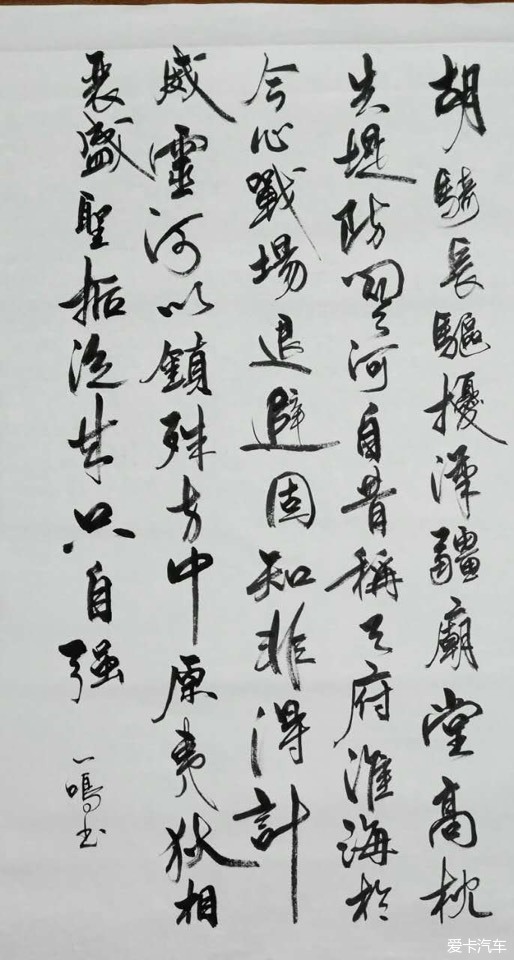 胡騎長驅擾漢疆廟堂高枕
失堤防關河自昔稱天府淮海於
今作戰場退避固知非得計
威靈河以鎮殊方中原夷狄相
衰盛聖哲從來只自强
一鳴书
爱卡汽车